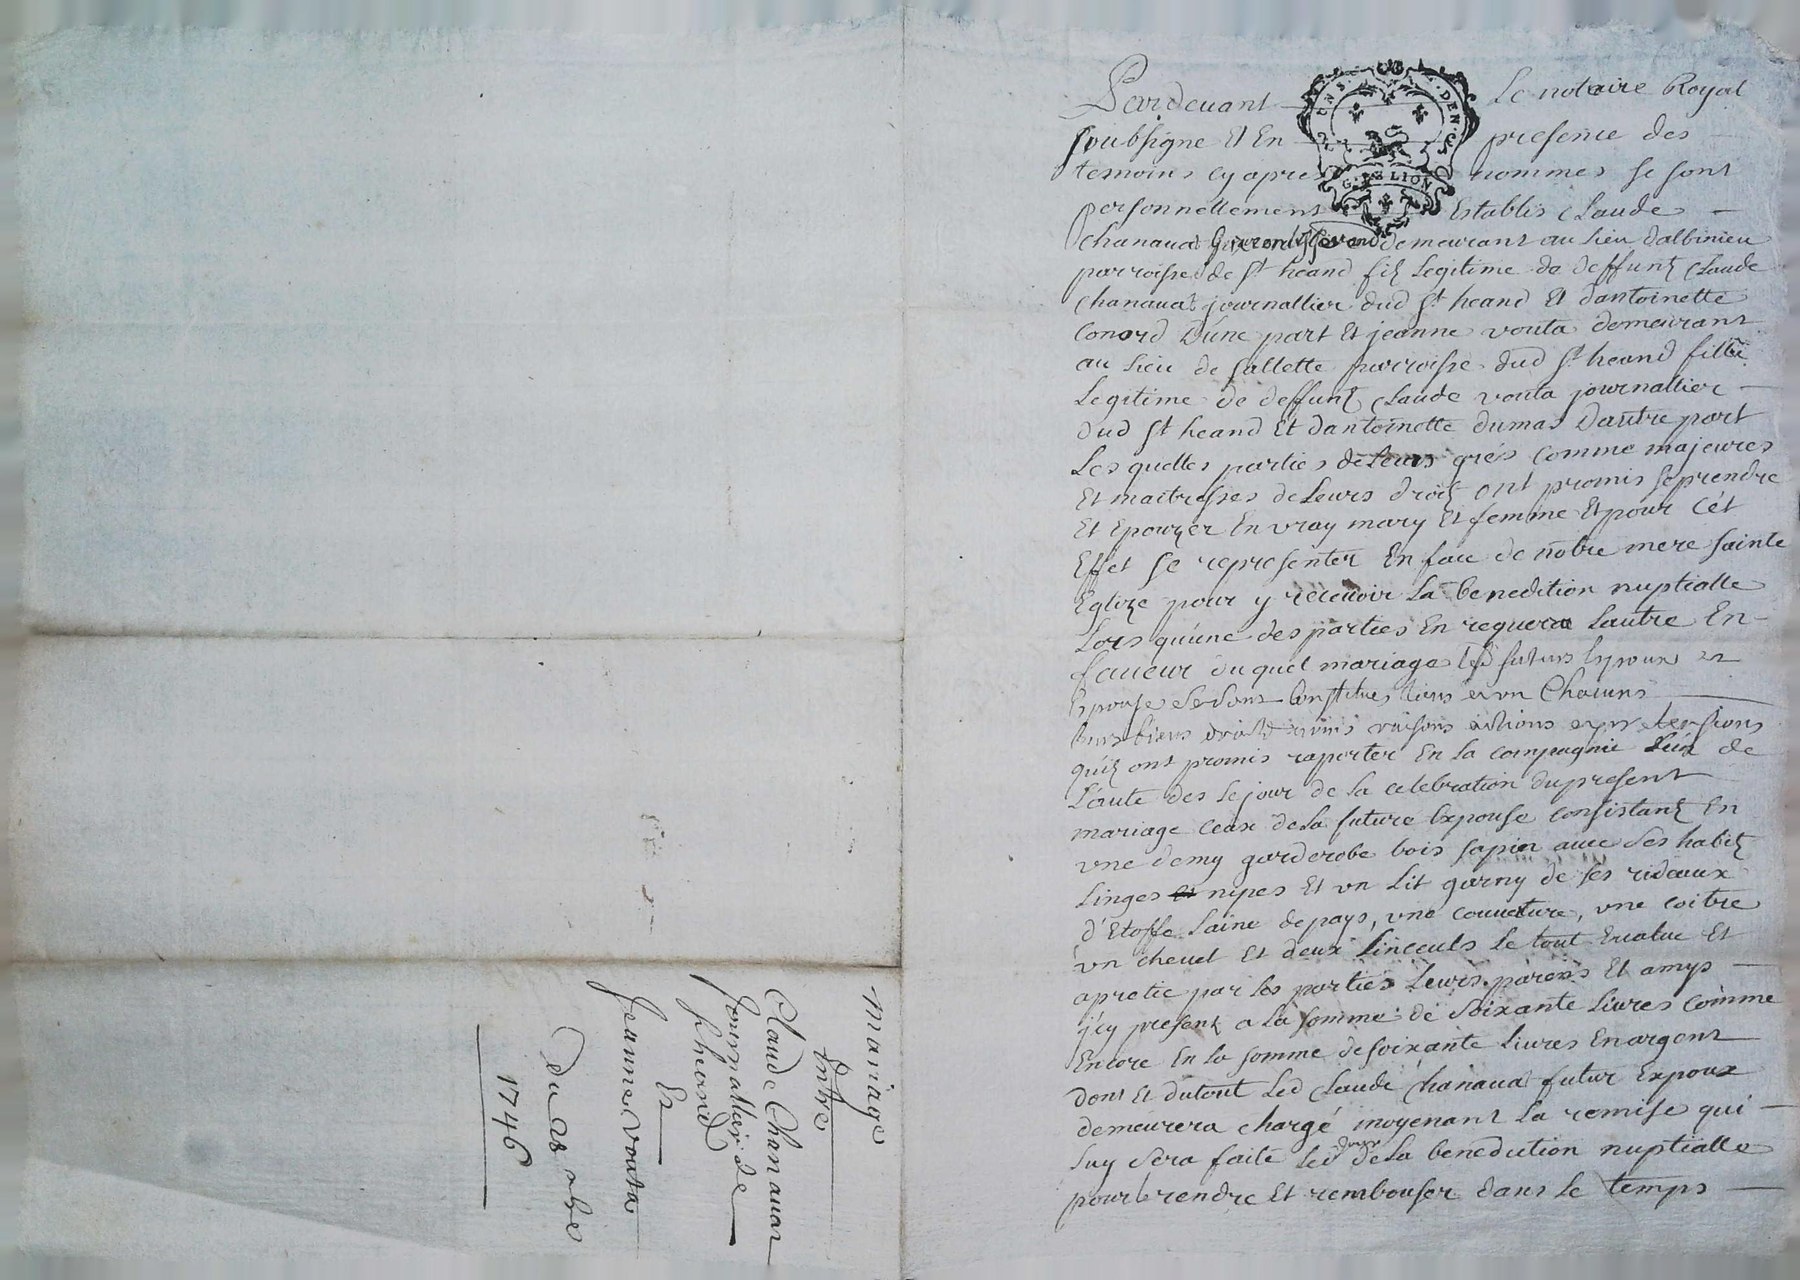 Pardevant Le notaire Royal
soubsigne Et En presence des
temoins cy apres nommes se sont
personnellement Establis Claude
chanauat demeurant au lieu dalbinieu
parroisse de st heand filz legitime de deffunt Claude
chanauat journallier dud st heand Et dantoinette
Conord D'une part Et jeanne vouta demeurant
au lieu de sallette parroisse dud st heand fille
Legitime de deffunt Claude vouta journallier
dud st heand Et dantoinette dumas Dautre part
Les quelles parties de Leurs grés Comme majeures
Et maitresses de Leurs droitz ont promis se prendre
Et Epouzer En vray mary Et femme Et pour cét
Effet se representer En face de notre mere sainte
Eglize pour y recevoir La benedition nuptialle
Lors qu'une des parties En requera Lautre En
faueur du quel mariage futurs Epoux et
Epouse se sont Constitues Chacuns
leurs biens droits noms raisons actions et pretensions
qu'ilz ont promis raporter En la compagnie de
L'autre des le jour de la celebration du present
mariage ceax de la future Expouse consistant En
vne demy garderobe bois sapin auec ses habitz
Linges nipes Et vn Lit garny de ses rideaux
d'Etoffe Laine de pays, vne couuerture, vne coitre
vn cheuet Et deux Linceuls le tout Eualue Et
apretie par les parties Leurs parens Et amys
j'cy present a La somme de soixante Liures comme
Encore En la somme de soixante Liures En argent
dont Et du tout Led Claude Chanauat futur Expoux
demeurera chargé moyenant La remise qui
Luy sera faite Led jour de La benediction nuptialle
pour le rendre Et rembourser dans le temps
mariage
Entre
Claude Chanauat
journallier de
st heand
Et
Jeanne vouta
Du 28 xbre
1746